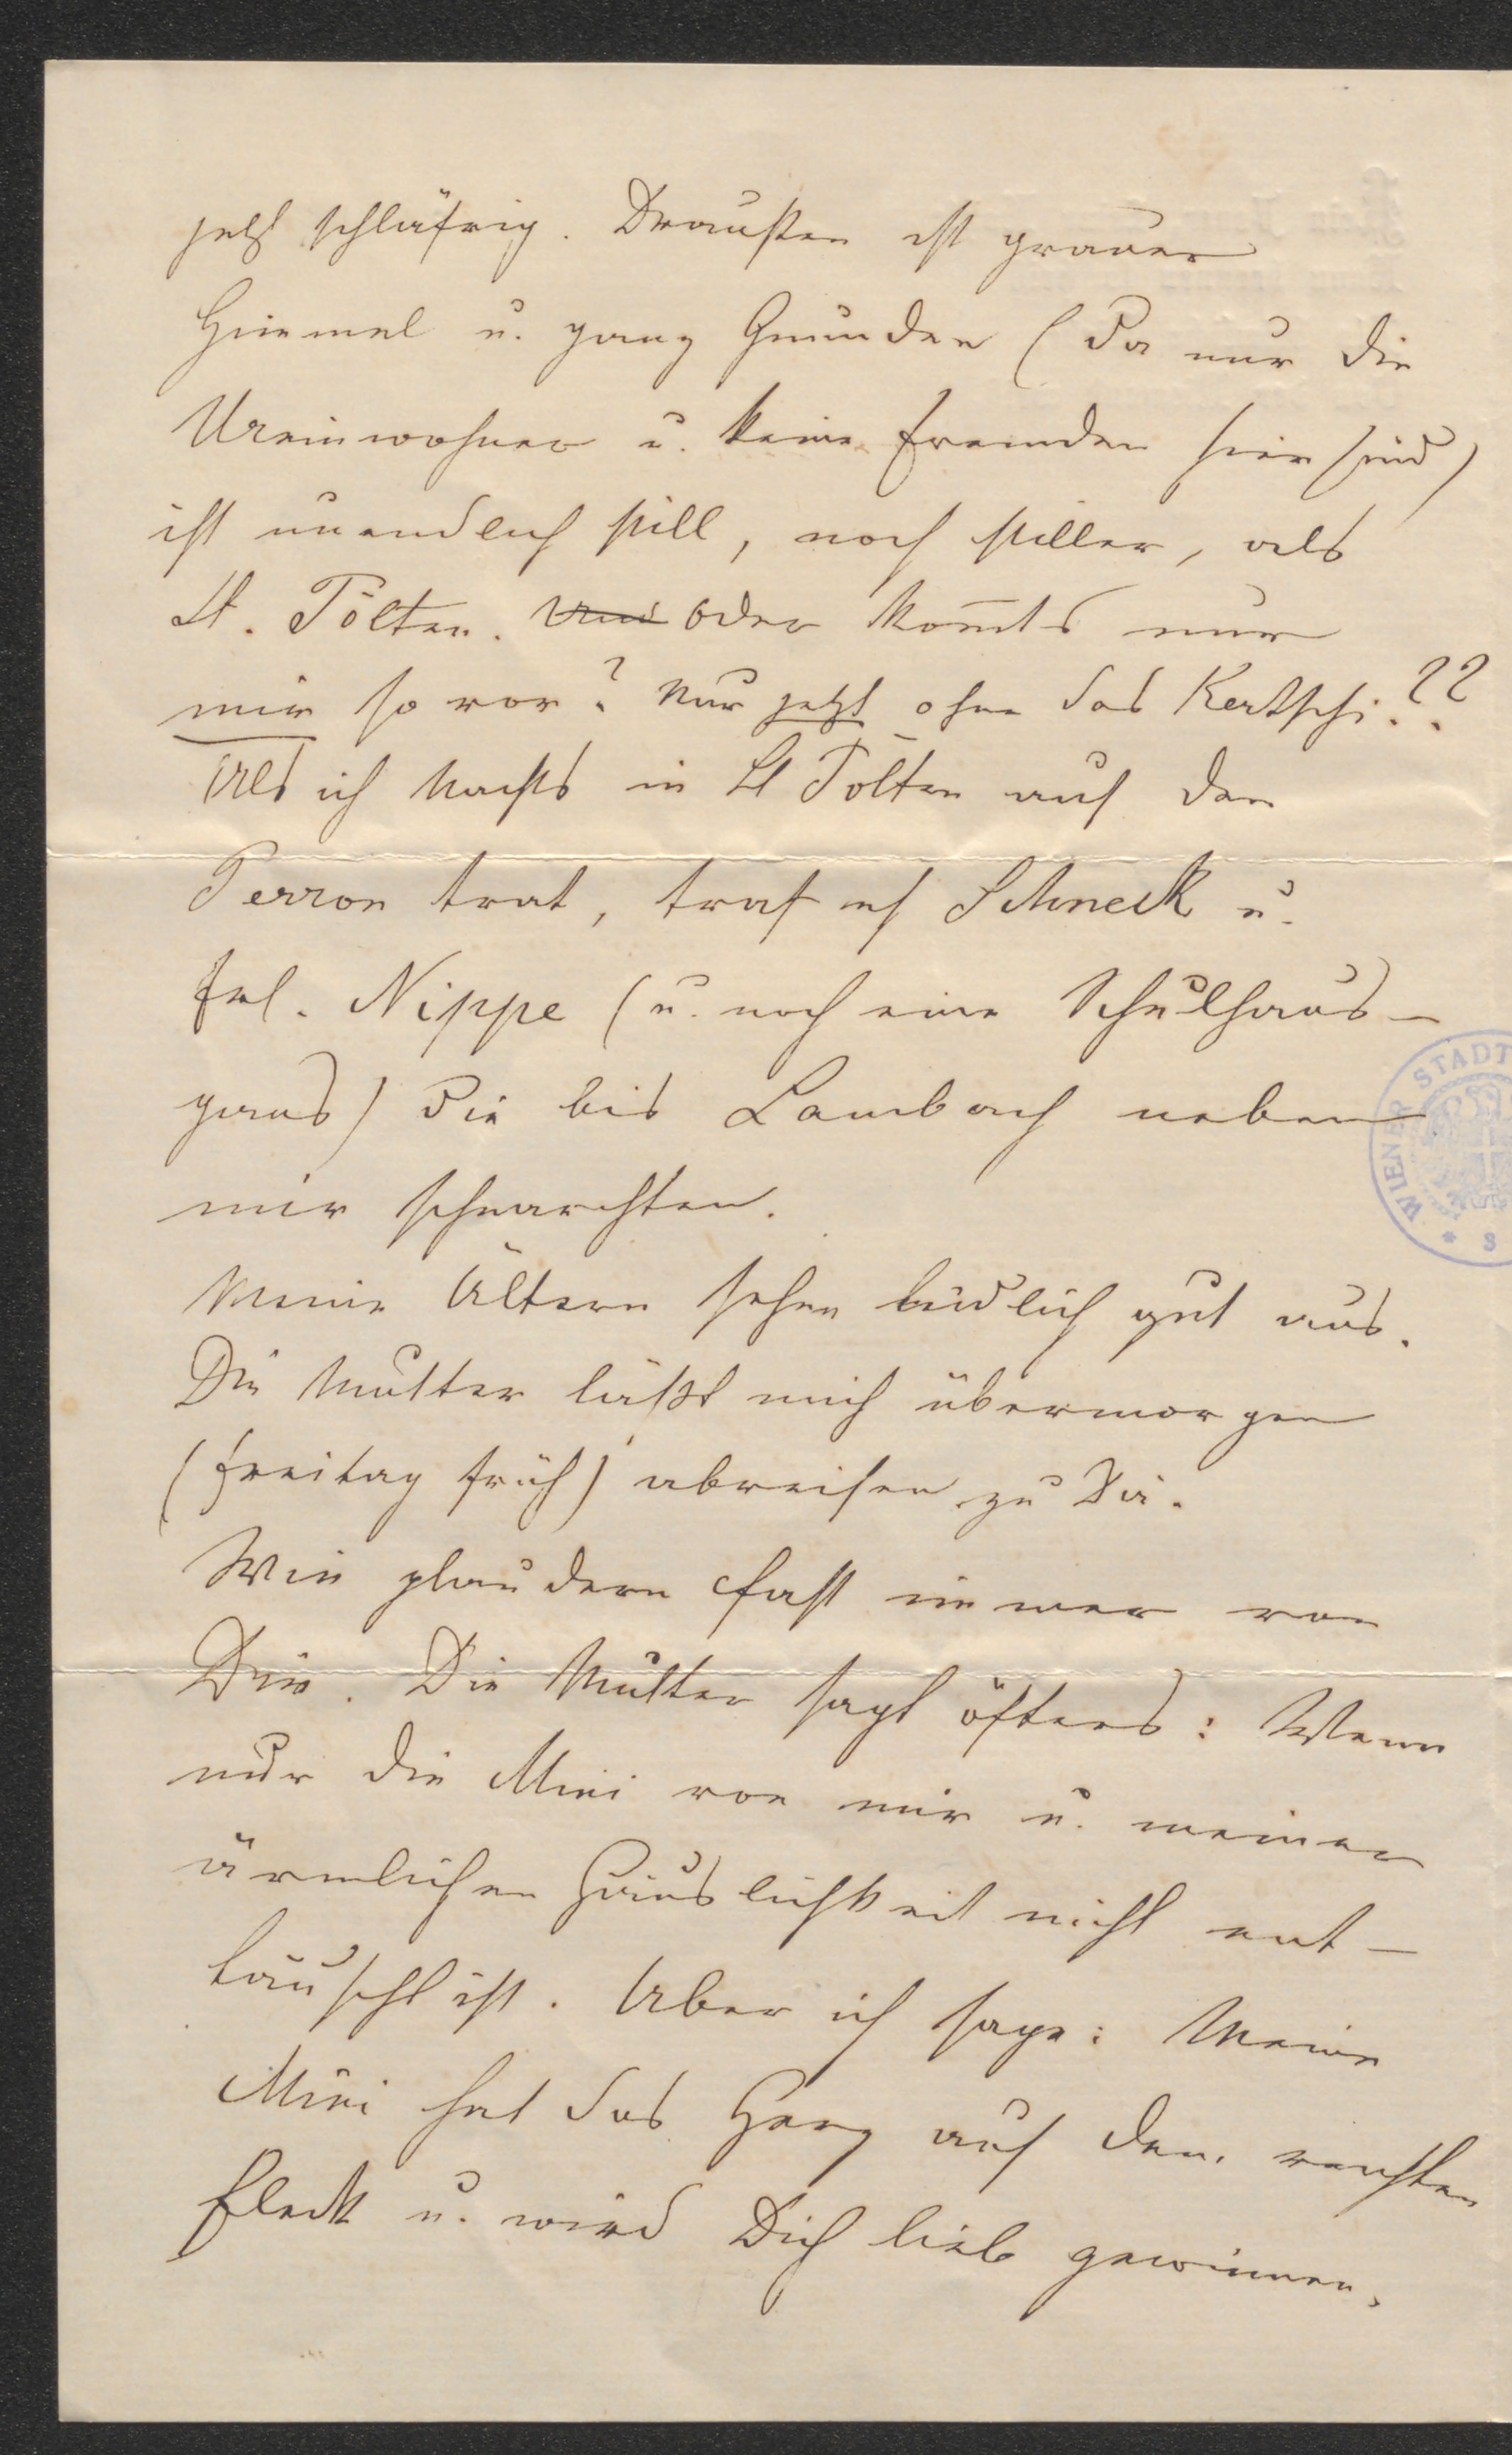 jetzt schläfrig. Draußen ist grauer
Himmel u. ganz Gmunden (da nur die
Ureinwohner u. keine Fremden hier sind)
ist unendlich still, noch stiller, als
St. Pölten. Und oder kom̅ts nur
mir so vor? Nur jetzt ohne das Kertschi??
Als ich Nachts in St Pölten auf den
Perron trat, traf ich Schneck u.
Frl. Nippe (u. noch eine Schulhaus-
gans) die bis Lambach neben
mir schnarchten.
Meine Ältern sehen leidlich gut aus.
Die Mutter läßt mich übermorgen
(Freitag früh) abreisen zu Dir.
Wir plaudern fast immer von
Dir. Die Mutter sagt öfters: Wenn
nur die Mini von mir u. meiner
ärmlichen Häuslichkeit nicht ent-
täuscht ist. Aber ich sage: Meine
Mini hat das Herz auf dem rechten
Fleck u. wird Dich lieb gewinnen,
WIENER STADT